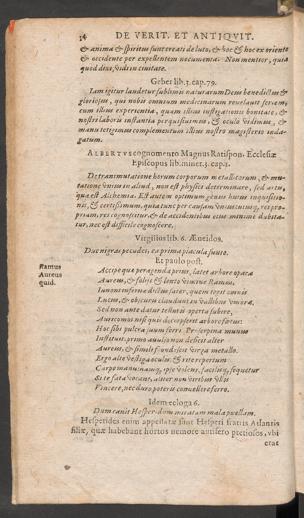 34 DE VERIT. ET ANTIQVIT.
& anima & spiritus sunt creati de luto, & hoc & hoc ex oriente
& occidente per expellentem nocumenta. Non mentior, quia
quod dixi, vidi in ciuitate.
Geber lib. 1. cap. 79.
Iam igitur laudetur sublimis naturarum Deus benedictus &
gloriosus, qui nobis omnium medicinarum reuelauit seriem,
cum illius experientia, quam illius instigatione bonitate, &
nostri laboris instantia perquisiuimus, & oculis vidimus, &
manu tetigimus complementum illius nostro magisterio inda-
gatum.
ALBERTVS cognomento Magnus Ratispon. Ecclesiæ
Episcopus lib. miner. 3. cap. 1.
De transmutatione horum corporum metallicorum, & mu-
tatione vnius in aliud, non est physici determinare, sed artis,
quæ est Alchemia. Est autem optimum genus huius inquisitio-
nis, & certissimum, quia tunc per causam vniuscuiusque, rei pro-
priam, res cognoscitur, & de accidentibus eius minime dubita-
tur, nec est difficile cognoscere.
Virgilius lib. 6. Æneidos.
Duc nigras pecudes, ea prima piacula sunto.
Et paulo post.
Ramus
Aureus
quid.
Accipe quæ peragenda prius, latet arbore opaca
Aureus, & foliis & lento vimine Ramus,
Iunoni infernæ dictus sacer, quem tegit omnis
Lucus, & obscuris claudunt in vallibus vmbræ.
Sed non ante datur telluris operta subire,
Auricomos nisi quis decerpserit arbore fœtus:
Hoc sibi pulcra suum ferri Proserpina munus
Instituit. primo auulso non deficit alter
Aureus, & simili frondescit virga metallo.
Ergo alte vestiga oculis: & rite repertum
Carpe manu: namque, ipse volens, facilisque, sequetur
Si te fata vocant, aliter non viribus vllis
Vincere, nec duro poteris conuellere ferro.
Idem ecloga 6.
Dum canit Hesperidum miratam mala puellam.
Hesperides enim appellatæ sunt Hesperi fratris Atlantis
filiæ, quæ habebant hortos nemore aurifero pretiosos, vbi
erat